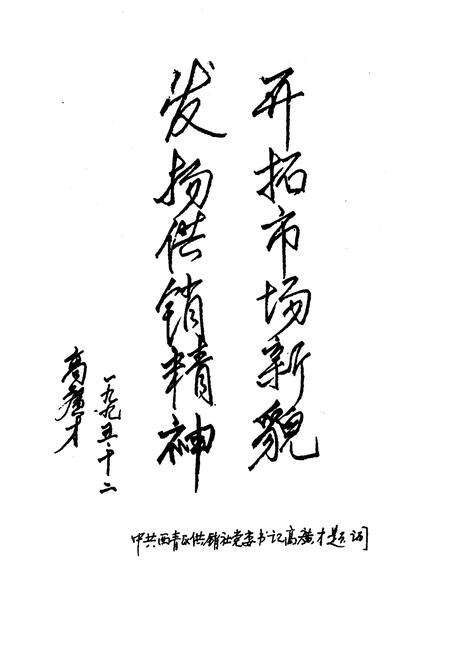 开拓市场新貌
发扬供销精神
一九九五·十二
高广才
中共西青区供销社党委书记高广才题词